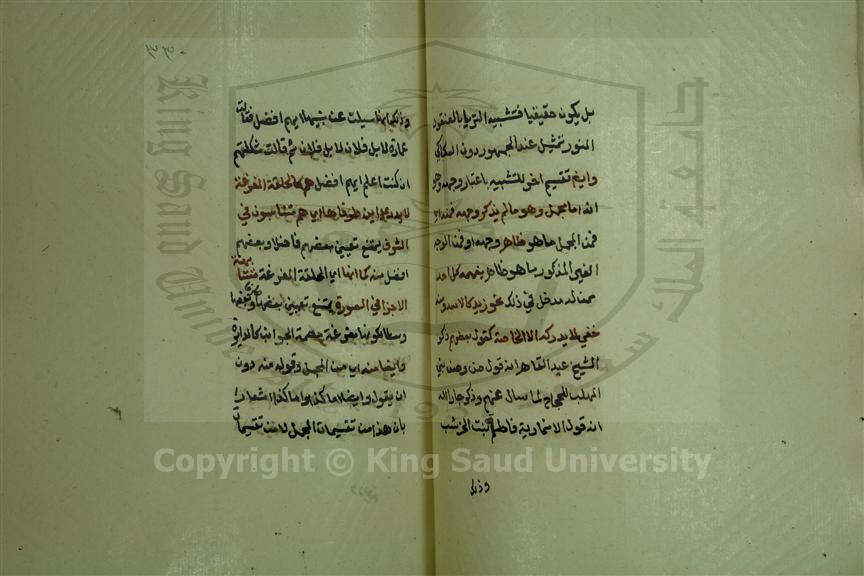 بل يكون حقيقيا فتشبيه الثريا بالعنقود
المنور تمثيل عند الجمهور دون السكاكي
وايضا تقسيم اخر للتشبيه باعتبار وجهه وهو
انه اما مجمل وهو مالم يذكر وجهه فمنه اي
فمن المجمل ما هو ظاهر وجهه او فمن الوجه
الغير المذكور ما هو ظاهر يفهمه كل احد
ممن له مدخل في ذلك نحو زيد كالاسد ومنه
خفي لا يدركه الا الخاصة كقول بعضهم ذكر
الشيخ عبد القاهر انه قول من وصف بني
المهلب للحجاج لما سال عنهم وذكر جار الله
انه قول الانمارية فاطمة بنت الخرشب
وذلك
وذلك انها سيلت عن بنيها ايهم افضل فقالت
عمارة لا بل فلان لا بل فلان ثم قالت ثكلتهم
ان كنت اعلم ايهم افضل هم كالحلقة المفرغة
لا يدرى اين طرفاها اي هم متناسبون في
الشرف يمتنع تعيين بعضهم فاضلا وبعضهم
افضل منه كما انها اي الحلقة المفرغة متناسبة
الاجزا في الصورة يمتنع تعيين بعضها طرفا وبعضها
وسطا لكونها مفرغة مصمتة الجوانب كالدايرة
وايضا منه اي من المجمل وقوله منه دون
ان يقول وايضا اما كذا واما كذا اشعار
بان هذا من تقسيمات المجمل لا من تقسيمات
King Saud University
Copyright © King Saud University